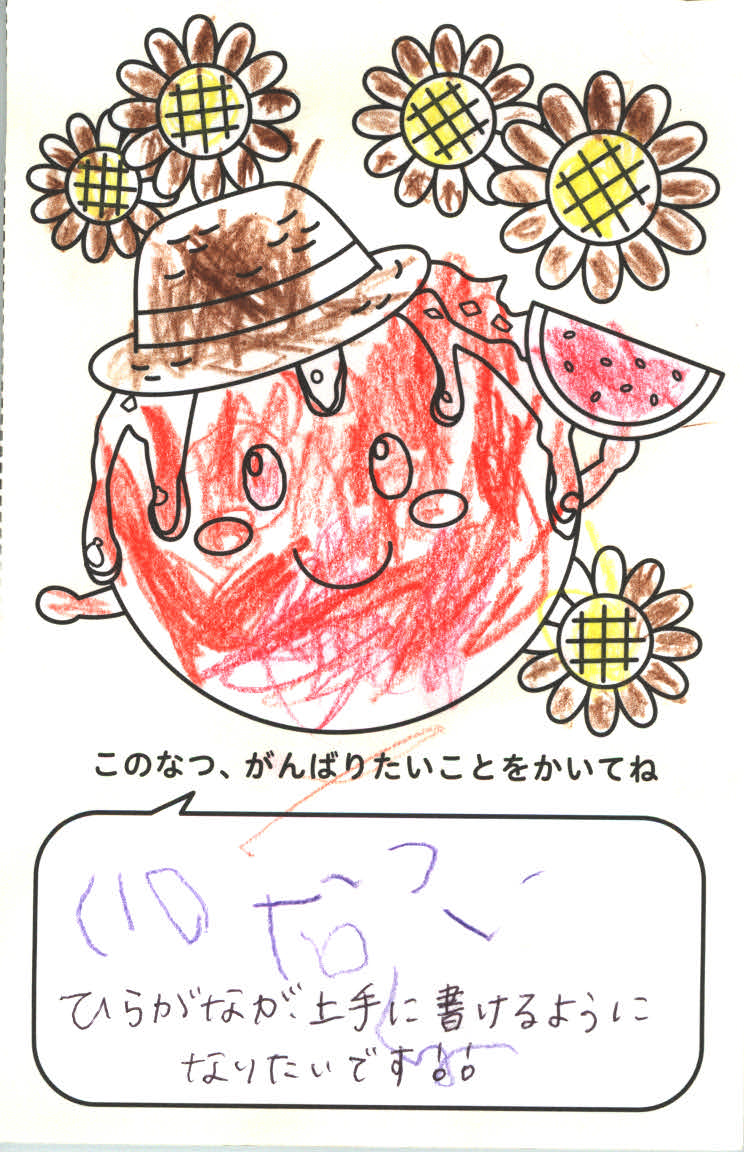 このなつ、がんばりたいことをかいてね
ひらがなが上手に書けるように
なりたいです!!